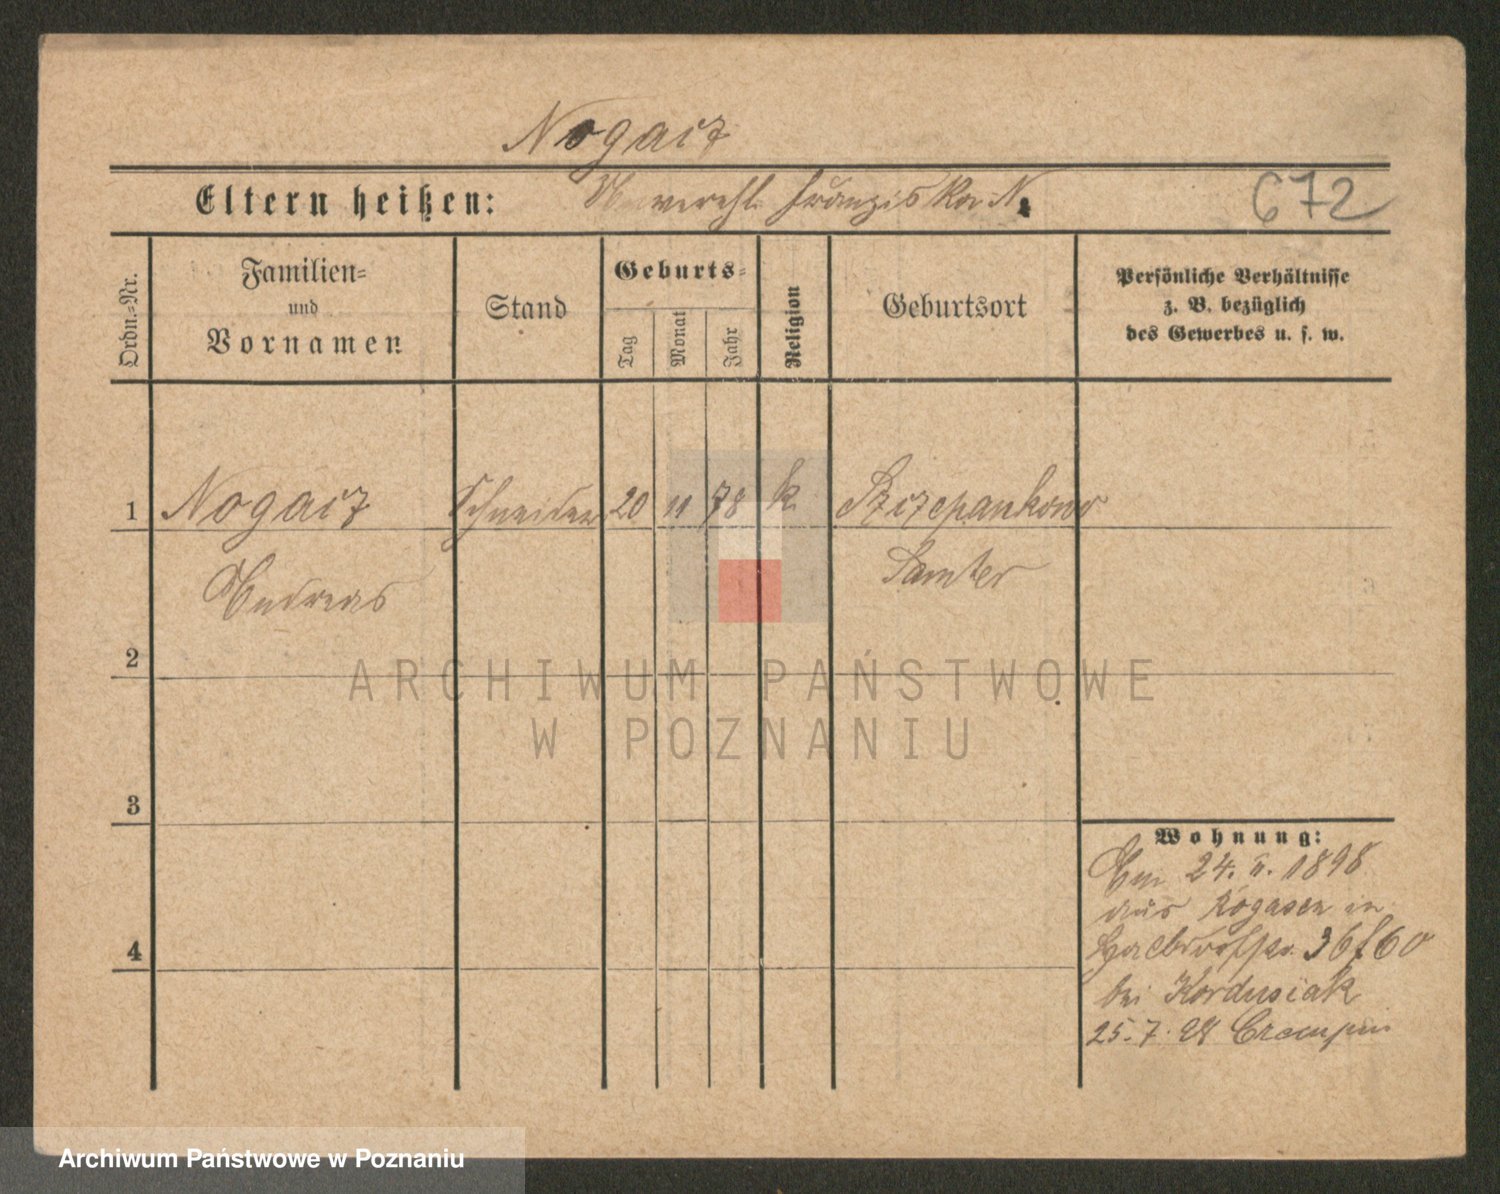 Nogacz
Eltern heißen: Unverehl. Franziska N.
672
Ordn.=Nr.
Familien=
und
Vornamen
Stand
Geburts=
Tag
Monat
Jahr
Religion
Geburtsort
Persönliche Verhältnisse
z. B. bezüglich
des Gewerbes u. s. w.
1 Nogacz Schneider 20 11 78 k. Szczepankowo
Andreas Samter
2
3
4
Wohnung:
24. 2. 1898
aus Rogasen in
36/60
bei Kordusiak
25. 7. 98
ARCHIWUM PAŃSTWOWE
W POZNANIU
Archiwum Państwowe w Poznaniu